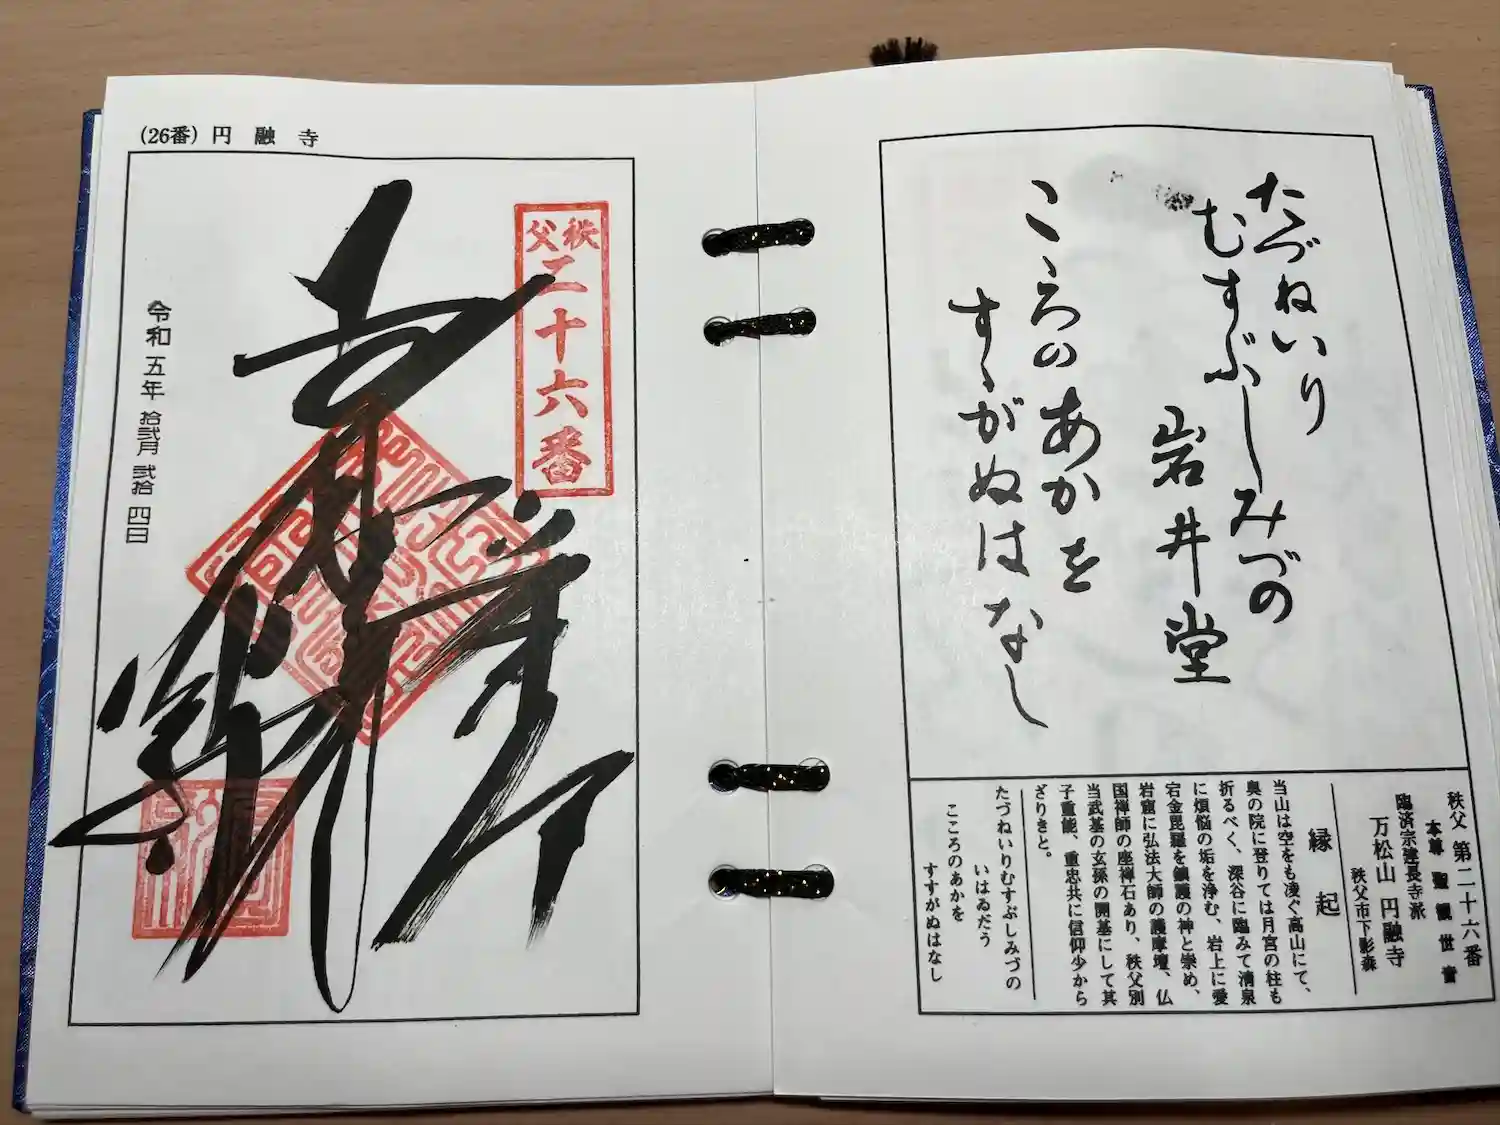 たづねいり
むすぶしみづの
岩井堂
こゝろのあかを
すゝがぬはなし
秩父 第二十六番
本尊 聖観世音
臨済宗建長寺派
万松山 円融寺
秩父市下影森
縁起
当山は空をも凌ぐ高山にて、
奥の院に登りては月宮の柱も
折るべく、深谷に臨みて清泉
に煩悩の垢を浄む、岩上に愛
宕金毘羅を鎮護の神と崇め、
岩窟に弘法大師の護摩壇、仏
国禅師の座禅石あり、秩父別
当武基の玄孫の開基にして其
子重能、重忠共に信仰少から
ざりきと。
たづねいりむすぶしみづの
いはゐだう
こころのあかを
すすがぬはなし
(26番) 円融寺
秩父
二十六番
令和五年拾弐月弐拾四日